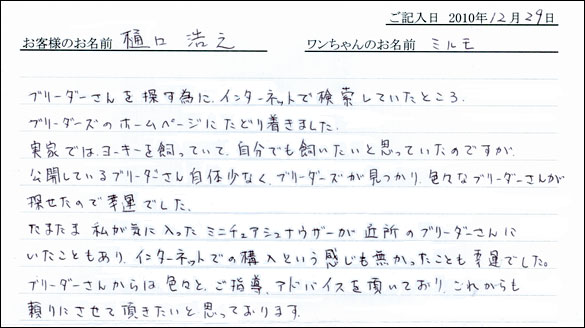 ご記入日 2010年12月29日
お客様のお名前 樋口 浩之 ワンちゃんのお名前 ミルモ
ブリーダーさんを探す為に、インターネットで検索していたところ、
ブリーダーズのホームページにたどり着きました。
実家では、ヨーキーを飼っていて、自分でも飼いたいと思っていたのですが、
公開しているブリーダーさん自体少なく、ブリーダーズが見つかり、色々なブリーダーさんが
探せたので幸運でした。
たまたま 私が気に入った ミニチュアシュナウザーが 近所のブリーダーさんに
いたこともあり、インターネットでの購入という感じも無かったことも幸運でした。
ブリーダーさんからは 色々と、ご指導、アドバイスを頂いており、これからも
頼りにさせて頂きたいと思っております。